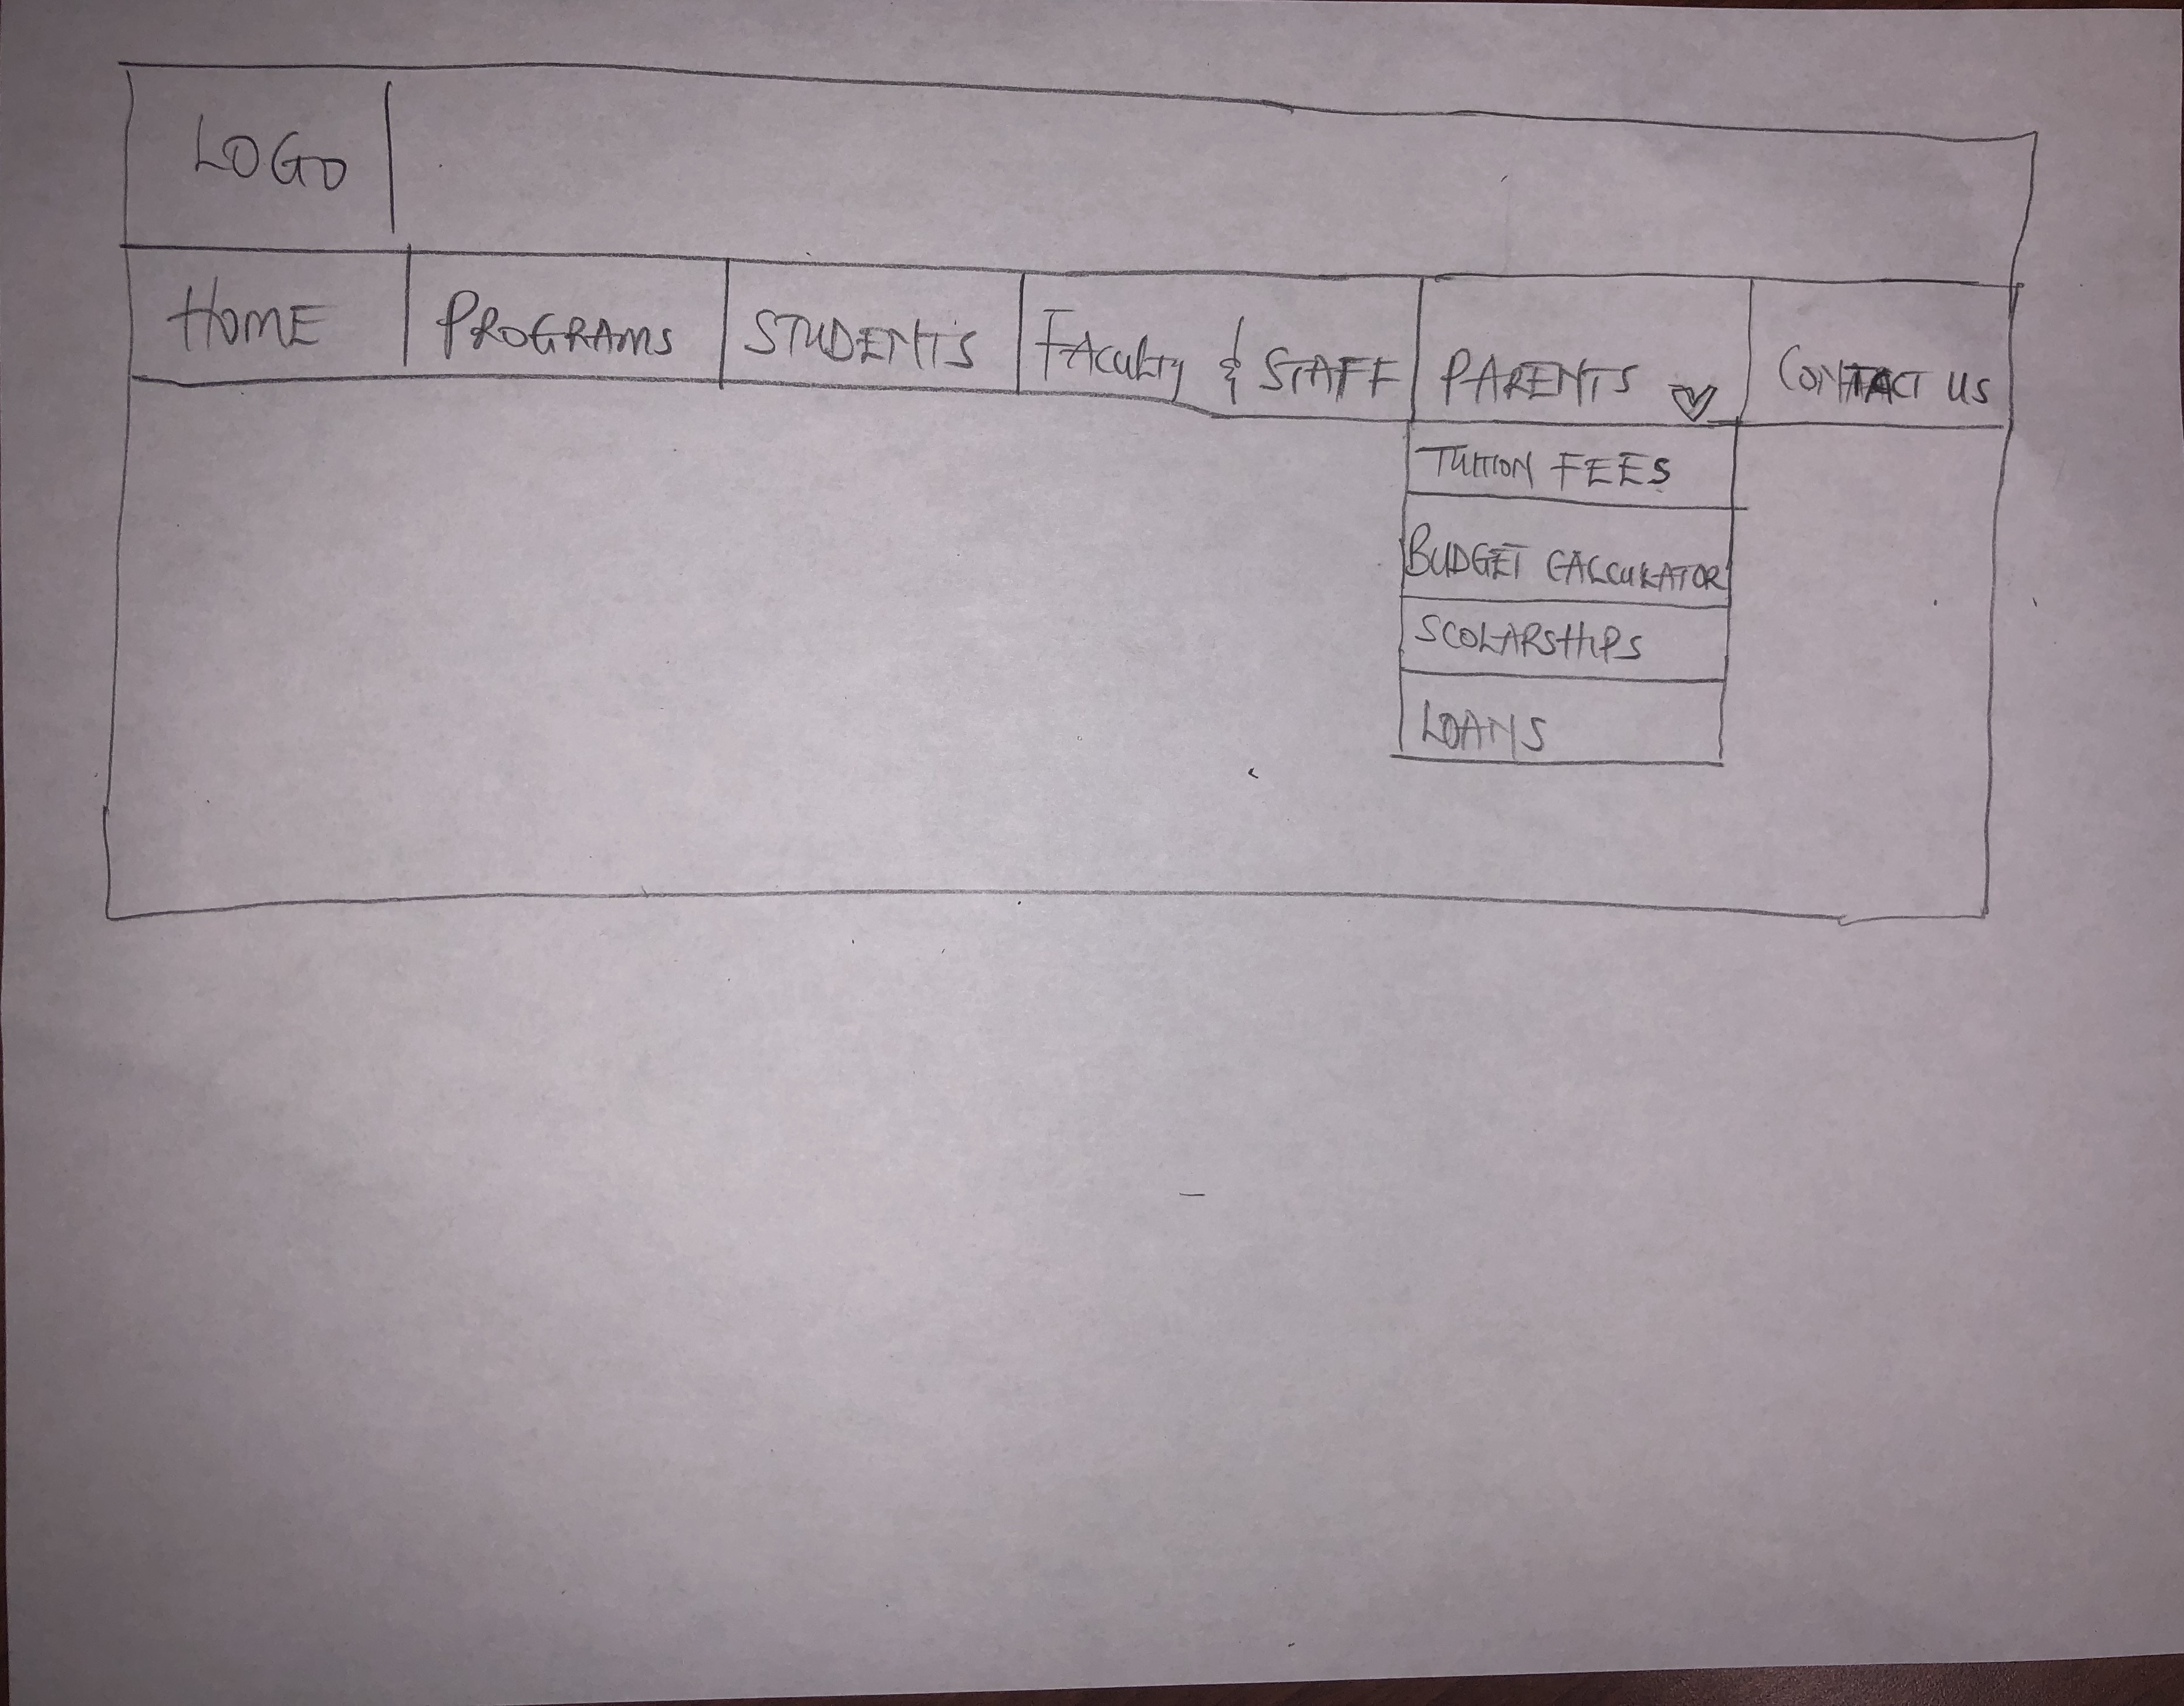 LOGO
HOME PROGRAMS STUDENTS FAculty & STAFF PARENTS CONTACT US
TUITION FEES
BUDGET CALCULATOR
SCOLARSHIPS
LOANS